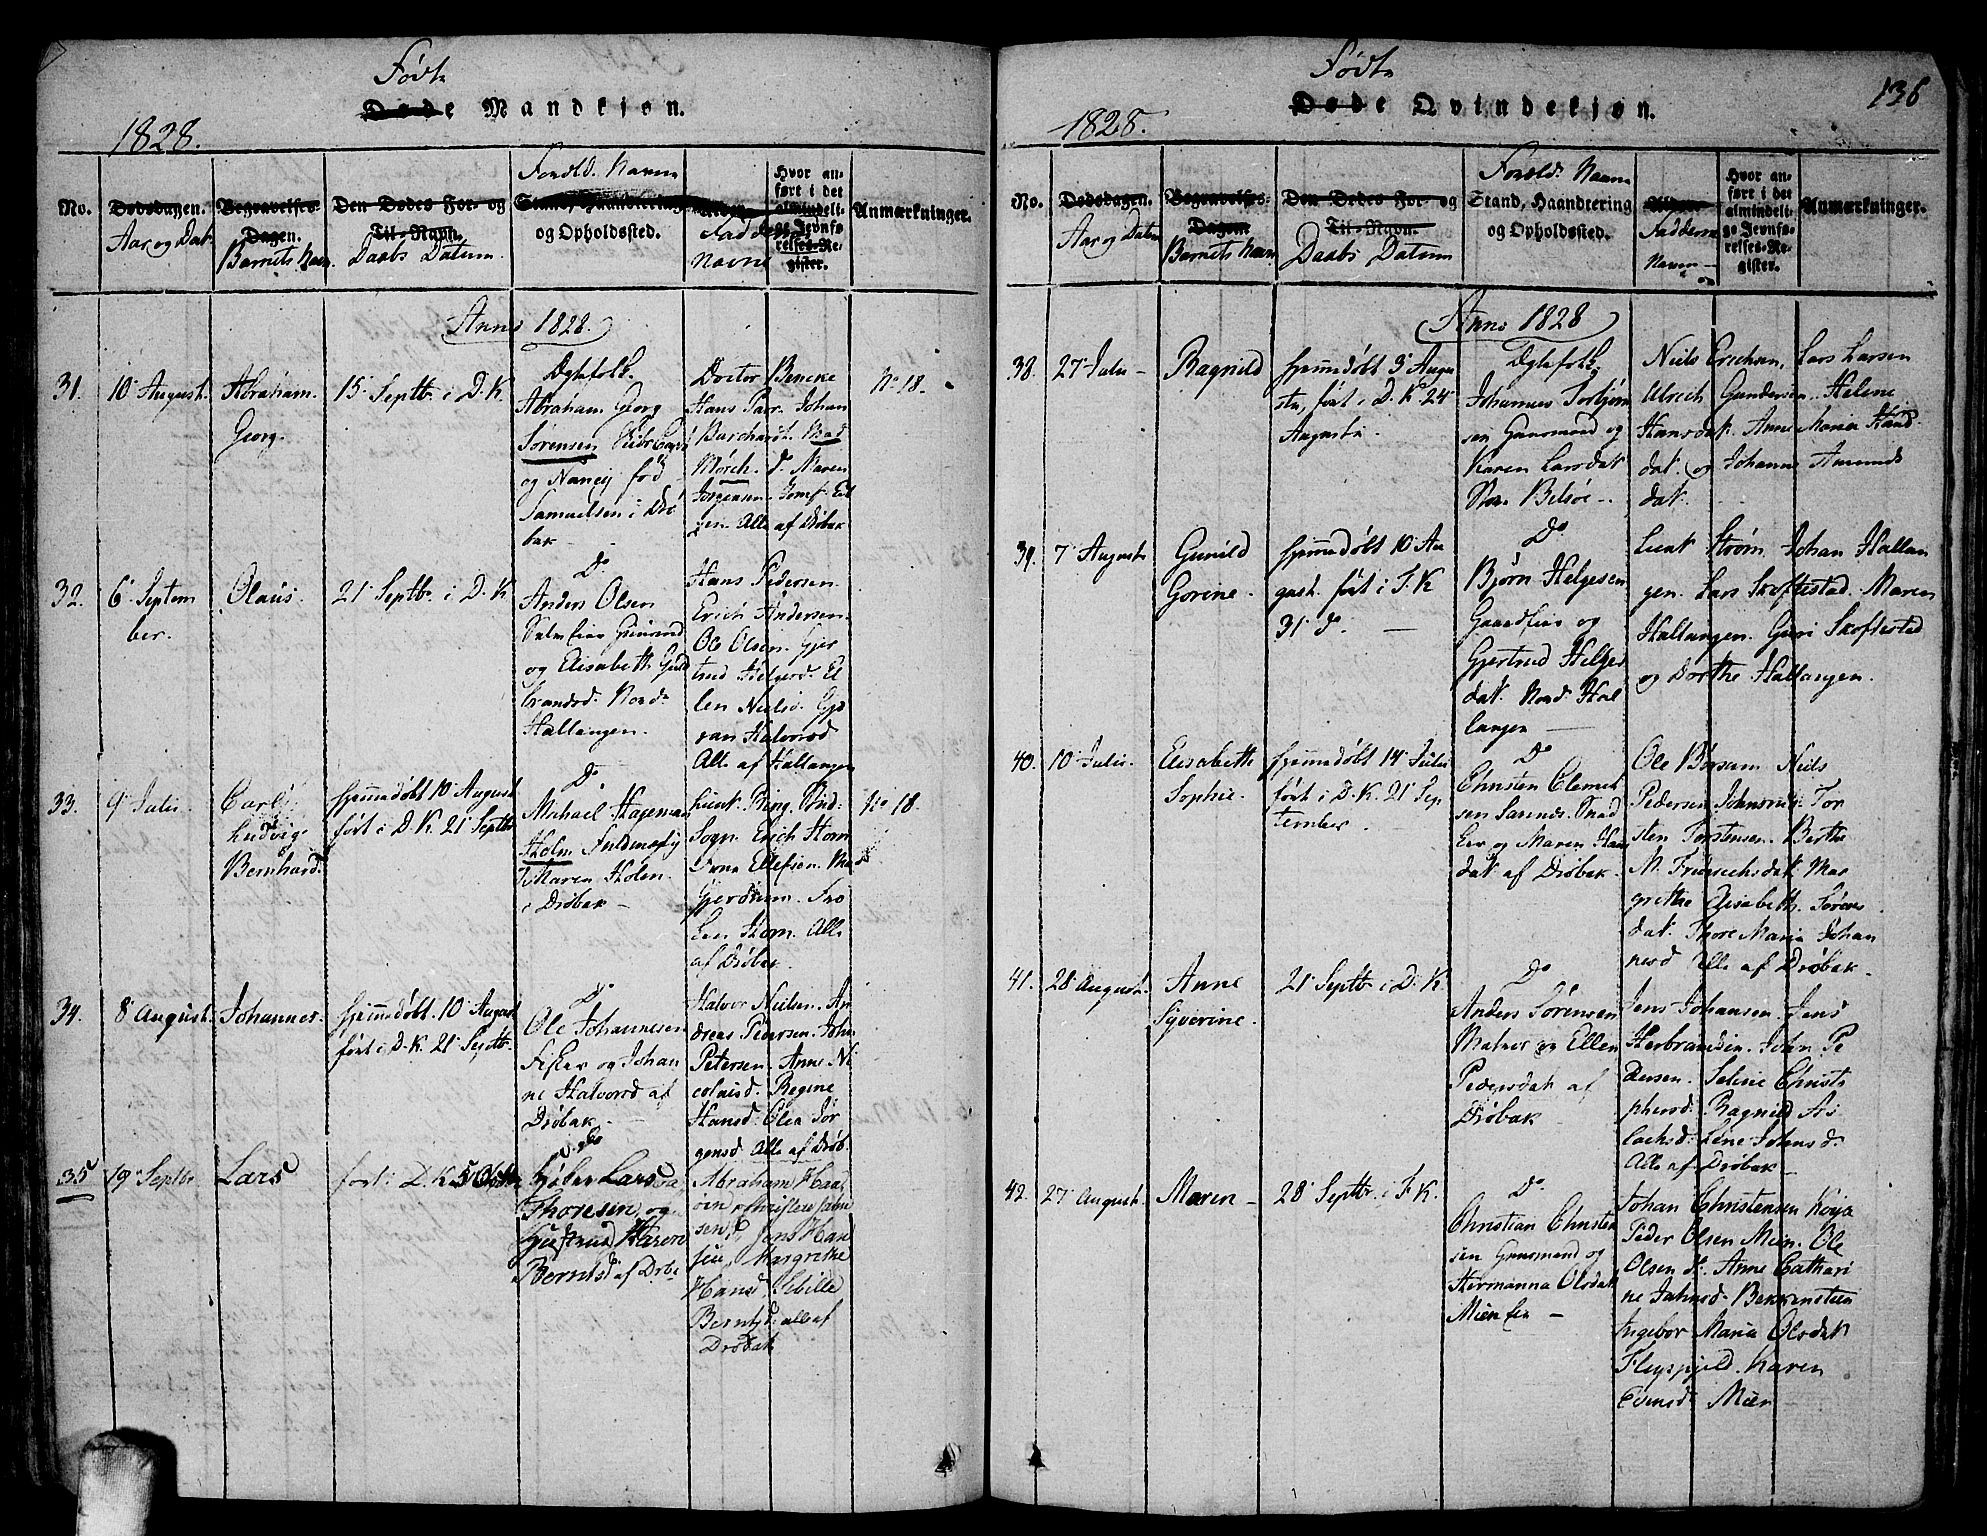 Födte
Døde Mandkjøn.
1828.
No.
Dødsdagen.
Aar og Dat.
Begravelses-
Dagen.
Barnets Navn
Den Dødes For- og
Til-Navn.
Daabs Datum
Foreld. Navne
Stand, Haandtering
og Opholdssted.
Alder.
Fadderne
Navne
Hvor an-
ført i det
almindeli-
ge Jevnfø-
relses-Re-
gister.
Anmærkninger.
Anno 1828.
31.
10 August.
Abraham
Georg.
15 Septbr. i D. K.
Ægtefolk.
Abraham Georg
Sørensen
og Nancy fød
Samuelsen i Drö
bak
Doctor Bencke
Hans Johan
Burchardt. Mad
Mörch. D. Maren
Jörgensen. Jomf.
Alle af Dröbak
No 18.
32.
6 Septem
ber.
Olaus.
21 Septbr. i D. K
Do
Anders Olsen
og Elisabeth Guld
brandsd. Nord
Hallangen.
Hans Pedersen
Erich Andersen
Ole Olsen. Gjer
trud Helgesd. El
len Nielsd. Gjö
ran Halvorsd
Alle af Hallangen
33.
9 Julii
Carl
Ludvig
Bernhard.
hjemmedöbt 10 August
fört i D. K. 21 Septbr
Do
Michael Hageman
Holm
Maren Holen
i Dröbak
Ring.
Sogn. Erich Horn
Ellefsen. Mad
Gjerdrum. Frö
Horn. Alle
af Dröbak.
No 18.
34.
8 August.
Johannes.
hjemmedöbt 10 August
fört i D. K. 21 Septbr
Do
Ole Johannesen
Fisker og Johan
ne Halvorsd af
Dröbak
Halvor Nielsen. An
dreas Pedersen. Johan
Petersen. Anne Ni
colaisd. Regine
Hansd. Olea Jör
gensd. Alle af Dröb.
35
19 Septbr
Lars
fört i D. K. 5 Octbr
Do
Lars
Thoresen og
Gjertrud Maren
Berntsd af Dröb.
Abraham Haa
sen, Jens Han
sen, Margrethe
Hansd. Sibille
Berntsd: alle af
Dröbak
Födte
Døde Qvindekjøn.
136
1828.
No.
Dødsdagen.
Aar og Datum
Begravelses-
Dagen
Barnets Navn
Den Dødes For- og
Til-Navn.
Daabs Datum
Foreld. Navne
Stand, Haandtering
og Opholdssted.
Alder.
Faddernes
Navne
Hvor an-
ført i det
almindeli-
ge Jevnfø-
relses-Re-
gister.
Anmærkninger.
Anno 1828
38.
27 Julii
Ragnild
hjemmedöbt 3 Augu
sti, fört i D. K. 24
Augusti.
Ægtefolk
Johannes Torbjörn
sen Huusmand og
Karen Larsdat
Belsöe
Niels Erichsen. Lars Larsen
Ulrich Gundersen. Helene
Hansdat. Anne Maria Haard
dat. og Johanne Amunds
dat.
39.
7 Augusti
Gunild
Gorine.
hjemmedöbt 10 Au
gust. fört i F. K
31 Do.
Do
Björn Helgesen
Gaardfier og
Gjertrud Helges
dat. Nord Hal
langen
Lieut Ström. Johan Hallan
gen. Lars Skoftestad. Maren
Hallangen. Guri Skoftestad
og Dorthe Hallangen.
40.
10 Julii.
Elisabeth
Sophie.
hjemmedöbt 14 Julii
fört i D. K. 21 Sep
tember.
Do
Christen Clemet
sen
og Maren Han
dat af Dröbak.
Ole Börsum. Niels
Pedersen Johnsrud. Tor
sten Torstensen. Berthe
M. Friderichsdat. Mar
grethe Elisabeth Sörens
dat. Thore Maria Johan
nesd Alle af Dröbak.
41.
28 August.
Anne
Syverine.
21 Septbr. i D. K.
Do
Anders Sörensen
Matros og Ellen
Pedersdat af
Dröbak
Jens Johansen. Jens
Herbrandsen. John Pe
dersen. Seline Christo
phersd. Ragnild As
lachsd. Lene Johnsd.
Alle af Dröbak
42.
27 August.
Maren
28 Septbr. i F. K.
Do
Christian Christen
sen Huusmand og
Hermanna Olsdat
Mien eie
Johan Christensen Köja
Peder Olsen Mien. Ole
Olsen do. Anne Cathari
ne Jahnsd. Bekkensteen
Ingebor Maria Olsdat
Karen
Evensd. Mien